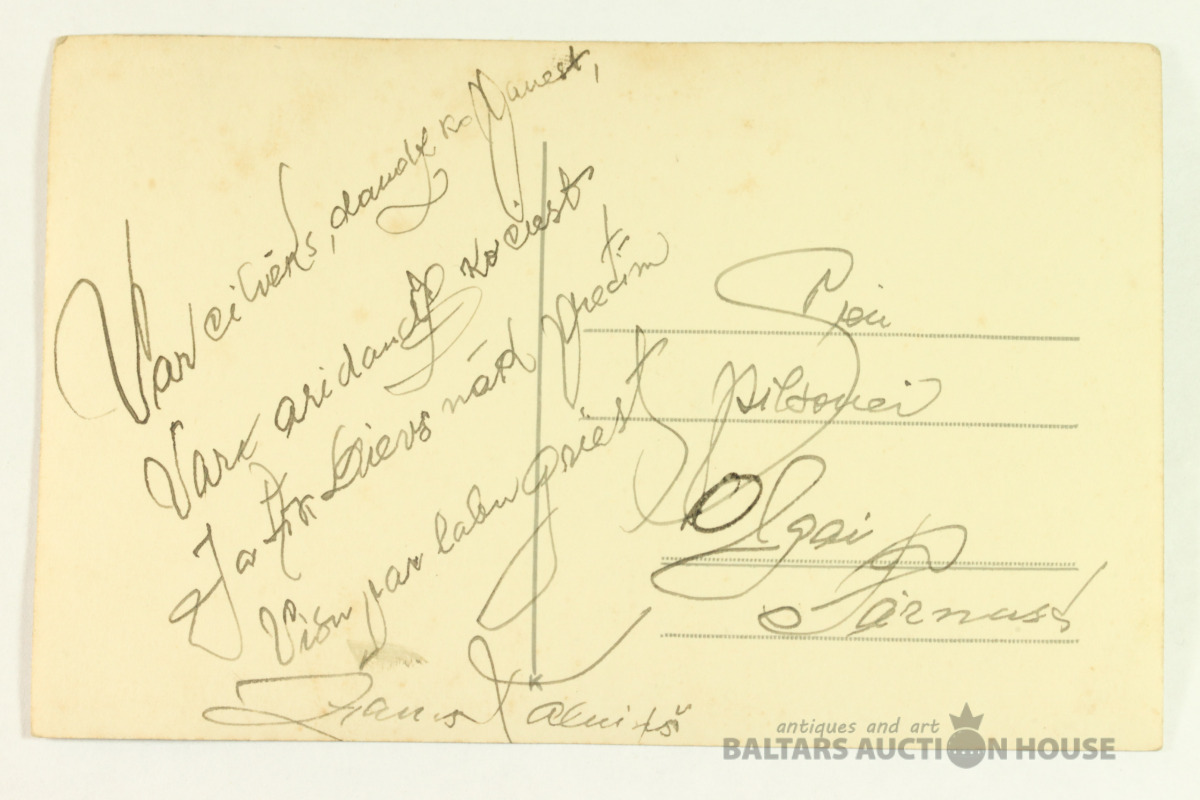 Var cilvēks, daudz ko panest,
Var arī daudz ko ciest
Ja tik Dievs nāk pretim
Visu par labu griest
Kalniņš
pilsonei
Olgai
antiques and art
BALTARS AUCTION HOUSE